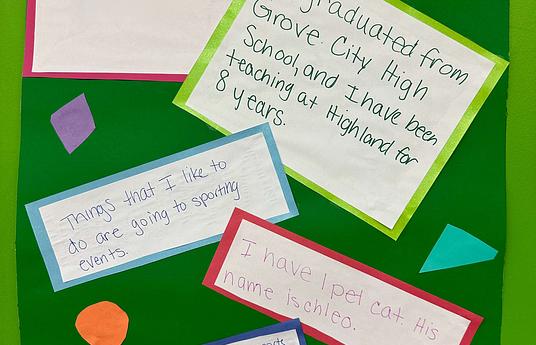 graduated from
Grove City High
School, and I have been
teaching at Highland for
8 years.
Things that I like to
do are going to sporting
events.
I have 1 pet cat. His
name is chleo.